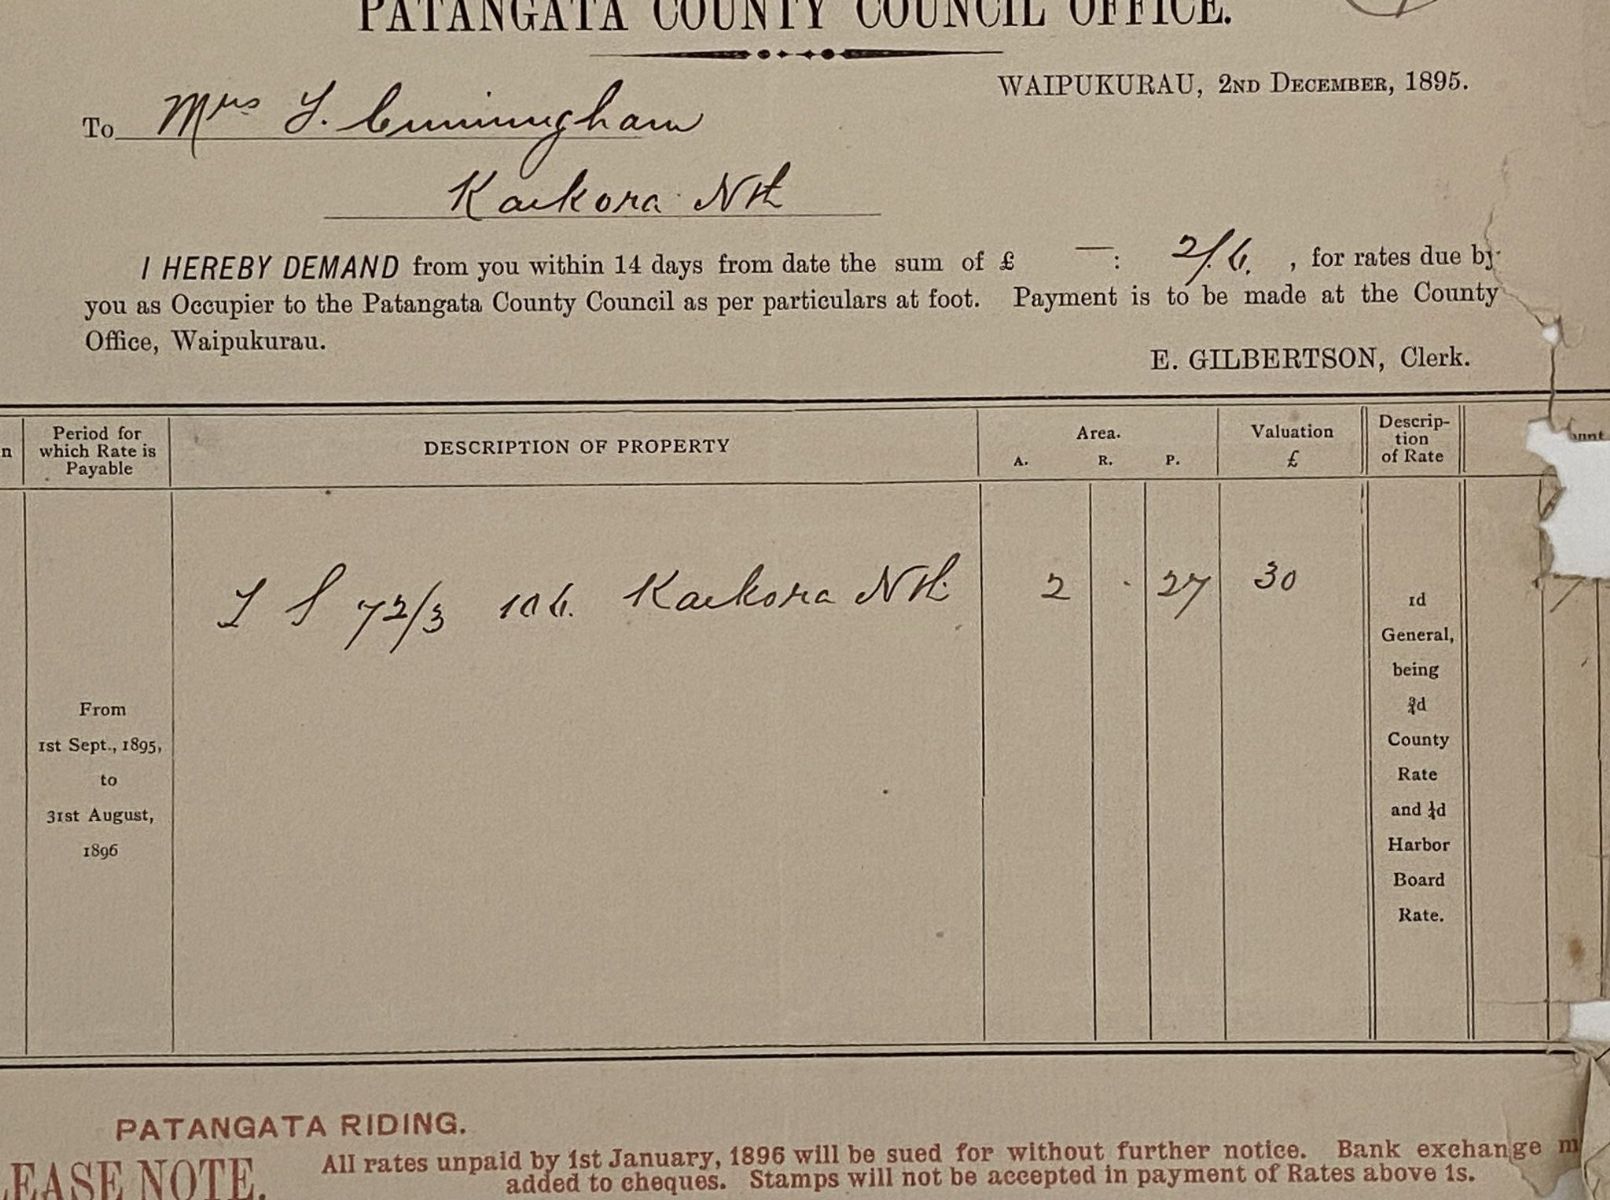 PATANGATA COUNTY COUNCIL OFFICE.
WAIPUKURAU, 2ND DECEMBER, 1895.
To Mrs Y. Cunningham
Kaikora Nth
I HEREBY DEMAND from you within 14 days from date the sum of £ — : 2/.6. , for rates due by
you as Occupier to the Patangata County Council as per particulars at foot. Payment is to be made at the County
Office, Waipukurau.
E. GILBERTSON, Clerk.
Period for
which Rate is
Payable
DESCRIPTION OF PROPERTY
Area.
A. R. P.
Valuation
£
Descrip-
tion
of Rate
72/3 106. Kaikora Nth. 2 . 27 30
From
1st Sept., 1895,
to
31st August,
1896
1d
General,
being
¾d
County
Rate
and ¼d
Harbor
Board
Rate.
PATANGATA RIDING.
EASE NOTE.
All rates unpaid by 1st January, 1896 will be sued for without further notice. Bank exchange m
added to cheques. Stamps will not be accepted in payment of Rates above 1s.